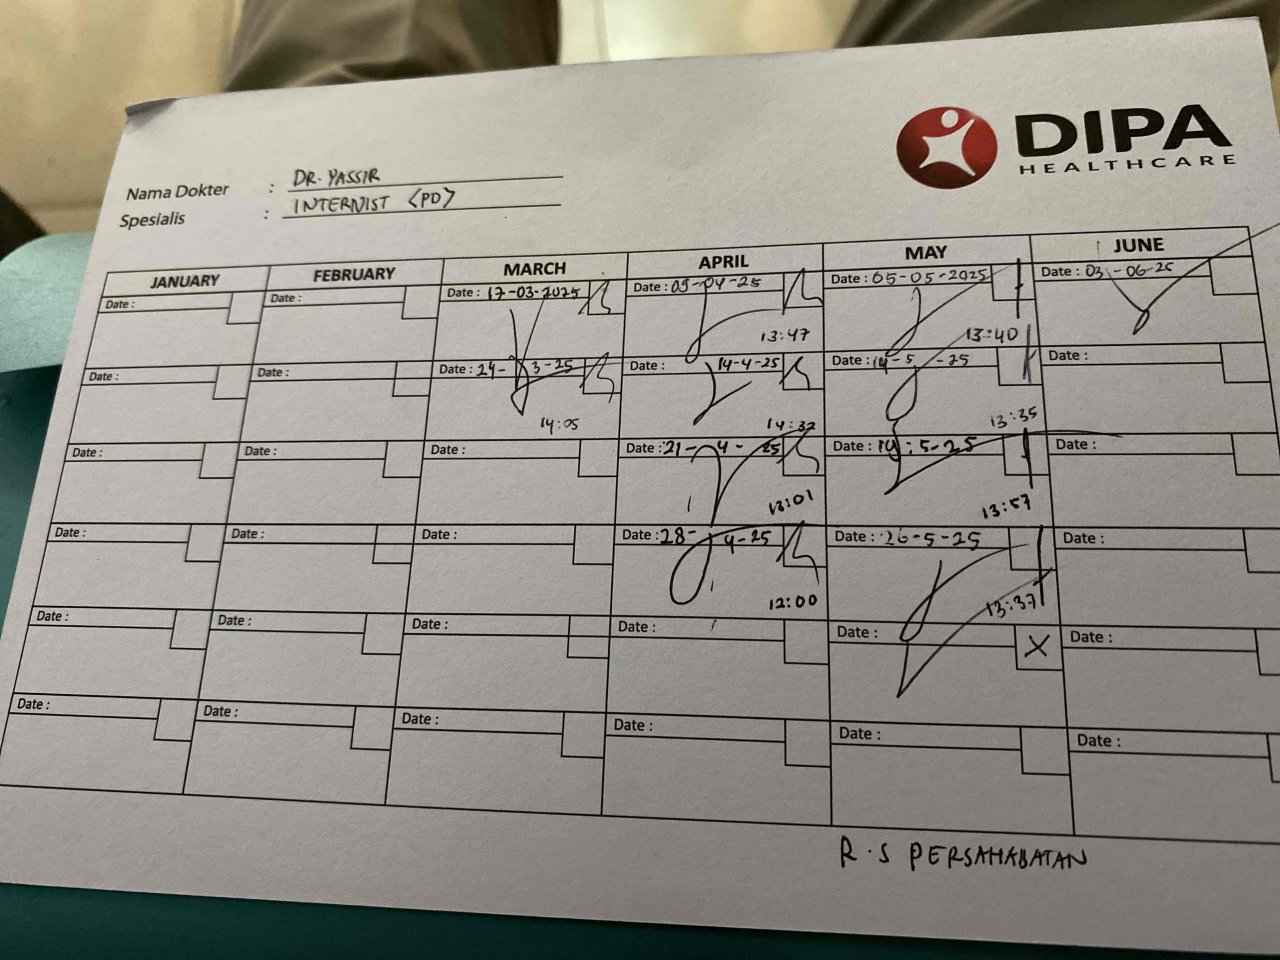 DIPA
HEALTHCARE
Nama Dokter : DR. YASSIR
Spesialis : INTERNIST (PD)
JANUARY FEBRUARY MARCH APRIL MAY JUNE
Date : Date : Date : 17-03-2025 Date : 05-04-25 Date : 05-05-2025 Date : 03-06-25
13:47 13:40
Date : Date : Date : 24-3-25 Date : 14-4-25 Date : 14-5-25 Date :
14:05 14:32 13:35
Date : Date : Date : Date : 21-4-25 Date : 19-5-25 Date :
13:01 13:57
Date : Date : Date : Date : 28-4-25 Date : 26-5-25 Date :
12:00 13:37
Date : Date : Date : Date : Date : X Date :
Date : Date : Date : Date : Date : Date :
R.S PERSAHABATAN